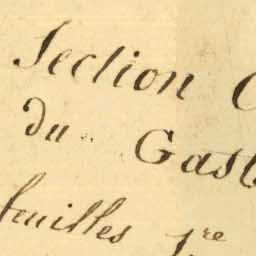 Section C
du Gast
feuilles 1re